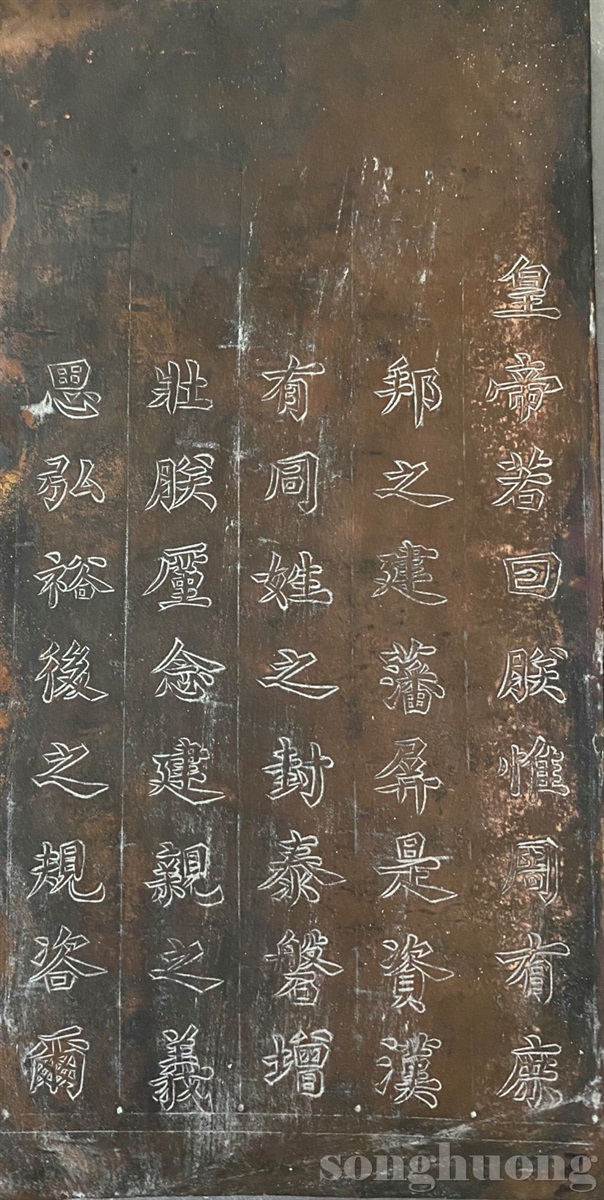 皇帝若曰朕惟周有庶
邦之建藩屏是資漢
有同姓之封泰磐增
壯朕厪念建親之義
思弘裕後之規咨爾
songhuong